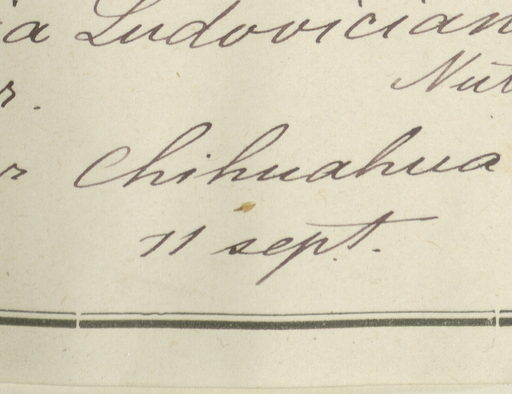 ia Ludovician
r. Nut
r Chihuahua
11 sept.